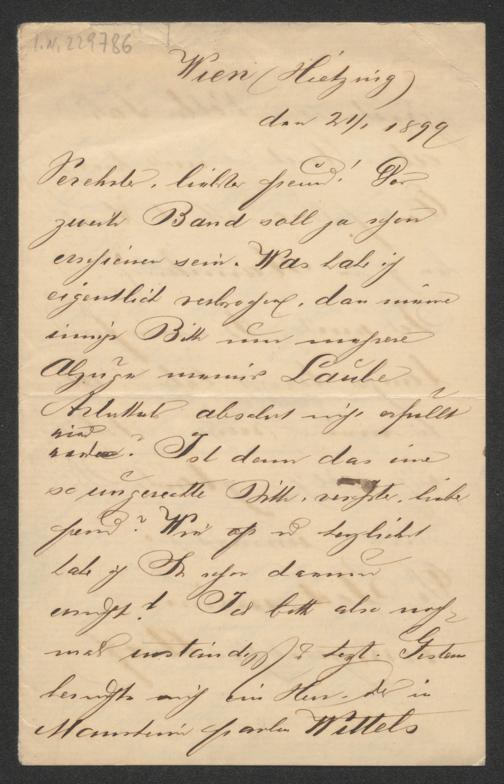 I.N. 229786
Wien (Hietzing)
den 21/1 1899
Verehrter, liebster Freund! Der
zweite Band soll ja schon
erschienen sein. Was habe ich
eigentlich verbrochen, dass meine
innige Bitte um mehrere
Abzüge meines Laube
absolut nicht erfüllt
wird
? Ist denn das eine
so ungerechte Bitte, verehrter, lieber
Freund? Wie oft u herzlichst
habe ich Sie schon darum
ersucht! Ich bitte also noch-
mal inständigst u Gestern
besuchte mich ein Herr, der in
Mannheim Wittels